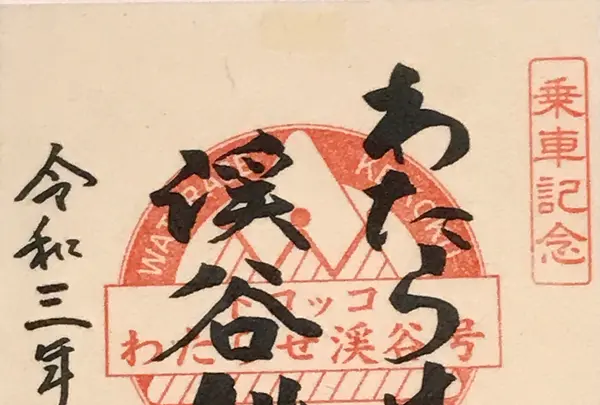 乗車記念
わたらせ
渓谷鐵
令和三年
WATARASE KEIKOKU
トロッコ
わたらせ渓谷号